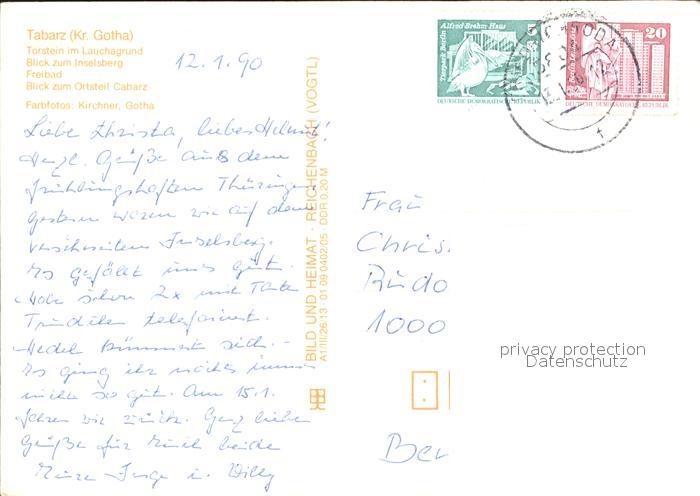 Tabarz (Kr. Gotha)
Torstein im Lauchagrund
Blick zum Inselsberg
Freibad
Blick zum Ortsteil Cabarz
Farbfotos: Kirchner, Gotha
12.1.90
Alfred-Brehm Haus
Tierpark Berlin
DEUTSCHE DEMOKRATISCHE REPUBLIK
20
DEUTSCHE DEMOKRATISCHE REPUBLIK
Liebe Christa, lieber Helmut!
Herzl. Grüße aus dem
frühlingshaften Thüringen
Gestern waren wir auf dem
verschneiten Inselsberg.
Es gefällt uns gut.
Habe schon 2x mit Tante
telefoniert.
Hedel kümmert sich.
Es ging ihr nichts immer
nicht so gut. Am 15.1.
fahren wir zurück. Ganz liebe
Grüße für Euch beide
Eure Inge u. Willy
BILD UND HEIMAT · REICHENBACH (VOGTL)
A1/III/26/13 · 01 09 0402/05 · DDR 0,20 M
Frau
Chris
Rudo
1000
Ber
privacy protection
Datenschutz